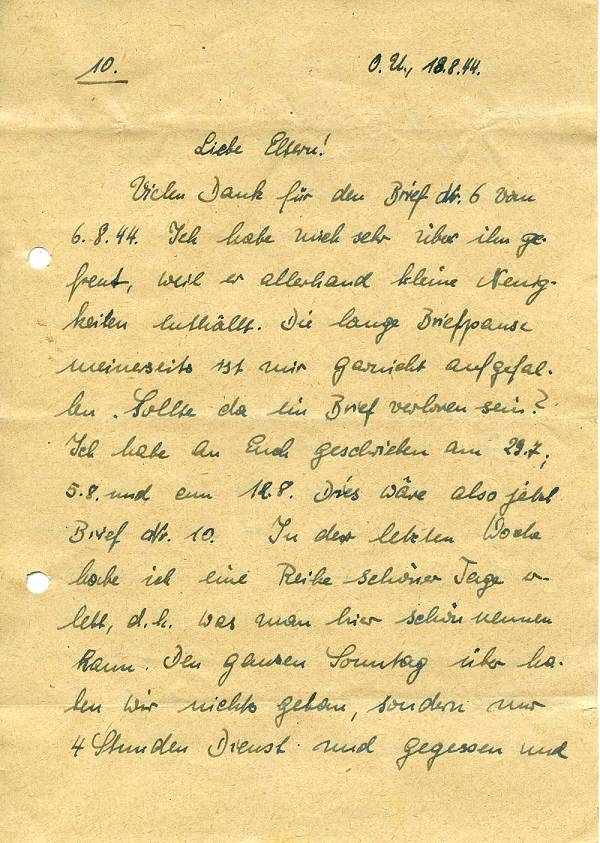 10.
O.U., 18.8.44.
Liebe Eltern!
Vielen Dank für den Brief Nr. 6 vom
6.8.44. Ich habe mich sehr über ihn ge-
freut, weil er allerhand kleine Neuig-
keiten enthällt. Die lange Briefpause
meinerseits ist mir garnicht aufgefal-
len. Sollte da ein Brief verloren sein?
Ich habe an Euch geschrieben am 29.7.,
5.8. und am 12.8. Dies wäre also jetzt
Brief Nr. 10. In der letzten Woche
habe ich eine Reihe schöner Tage er-
lebt, d.h. was man hier schön nennen
kann. Den ganzen Sonntag über ha-
ben wir nichts getan, sondern nur
4 Stunden Dienst und gegessen und